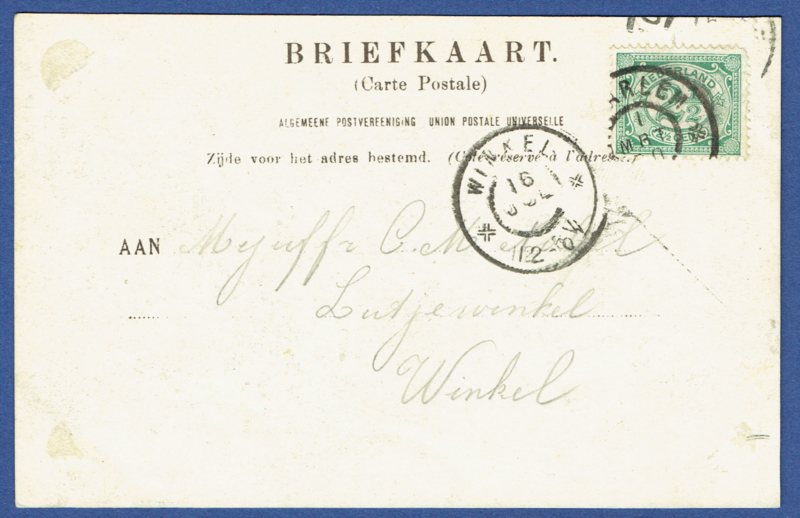 BRIEFKAART.
(Carte Postale)
ALGEMEENE POSTVEREENIGING UNION POSTALE UNIVERSELLE
Zijde voor het adres bestemd. (Côté réservé à l'adresse.)
NEDERLAND
2½
CENT
WINKEL
16
12
AAN Mejuffr C. M.
Lutjewinkel
Winkel